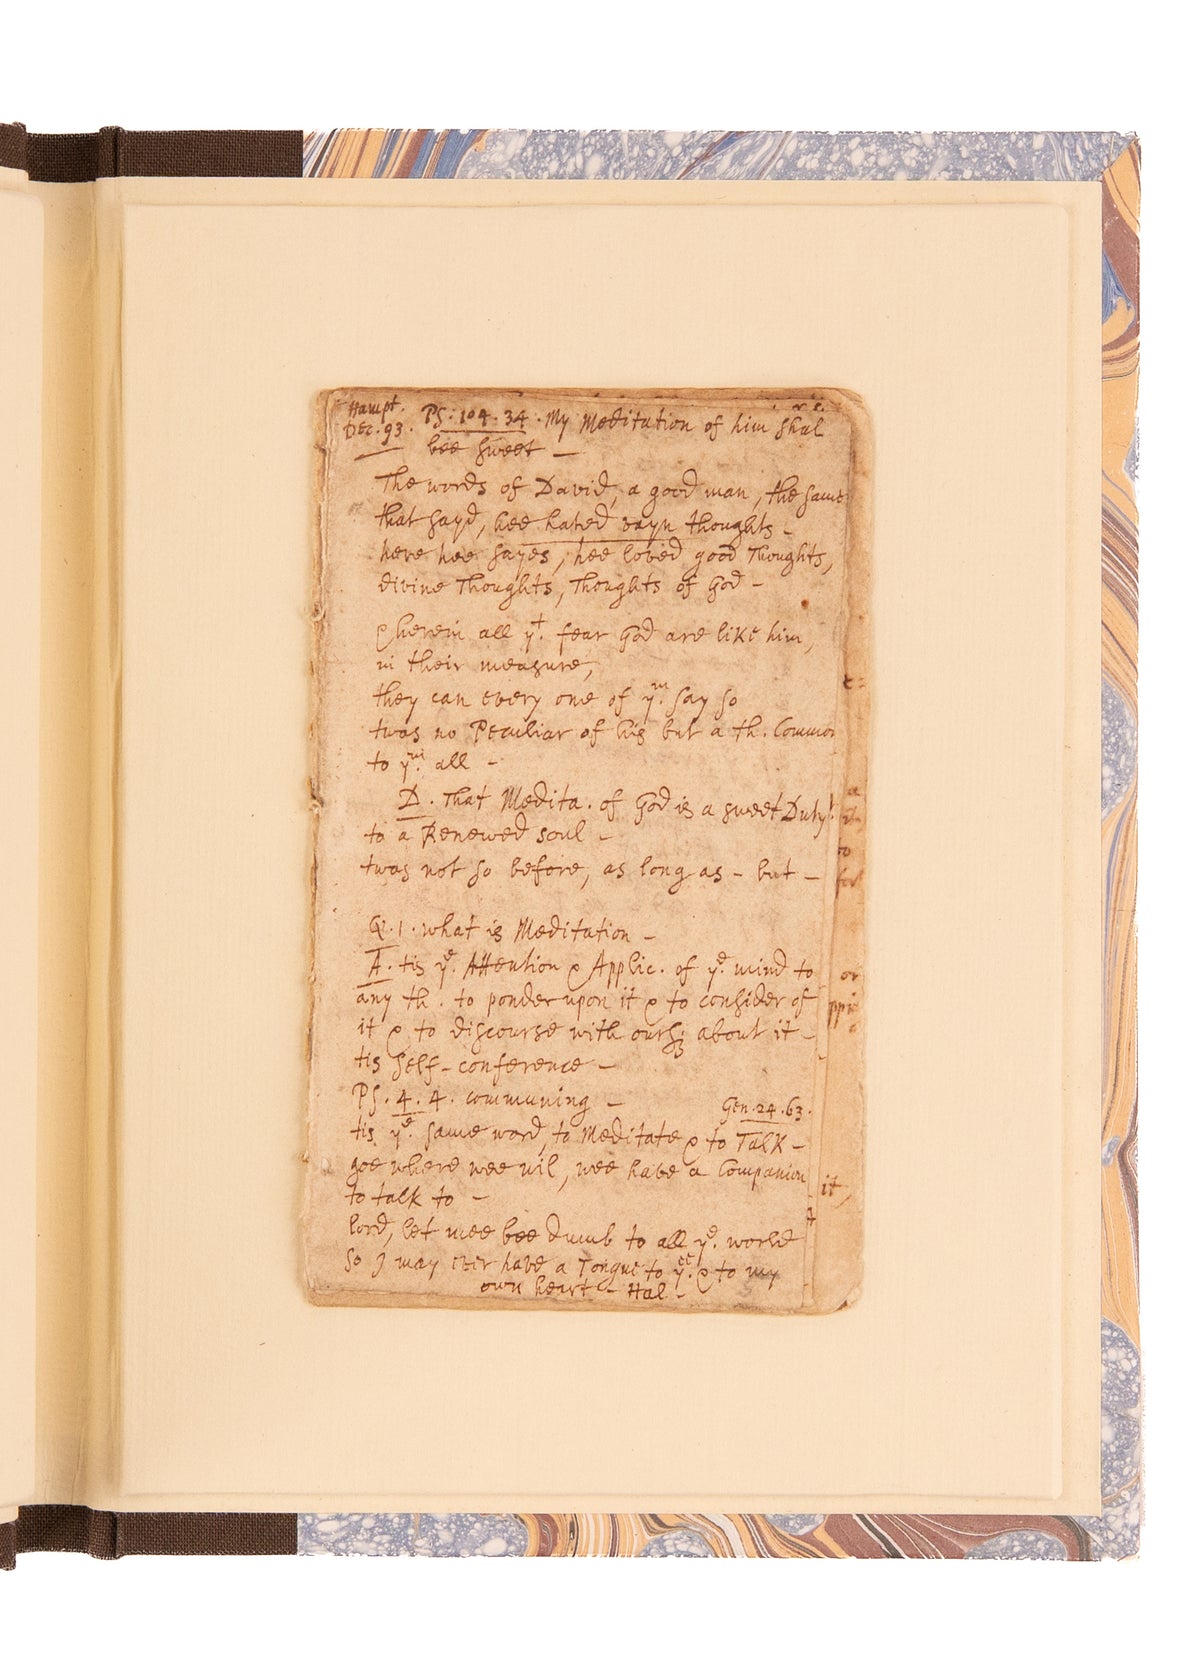 Hampt.
Dec. 93. Ps. 104. 34. My Meditation of him shal
bee sweet —
The words of David, a good man, the same
that sayd, hee hated vayn thoughts —
here hee sayes, hee loved good Thoughts,
divine Thoughts, Thoughts of God —
wherein all yt. fear God are like him,
in their measure,
they can every one of ym. say so
twas no Peculiar of his but a th. Common
to ym. all —
D. That Medita. of God is a sweet Duty
to a Renewed soul —
twas not so before, as long as — but —
Q. 1. what is Meditation —
A. tis ye. Attention & Applic. of ye. mind to
any th. to ponder upon it & to consider of
it & to discourse with ours; about it —
tis self-conference —
Ps. 4. 4. communing — Gen. 24. 63.
tis ye. same word, to Meditate & to Talk —
goe where wee wil, wee have a Companion
to talk to —
lord, let mee bee dumb to all ye. world
so I may ever have a Tongue to yee. & to my
own heart — Hal —
it,